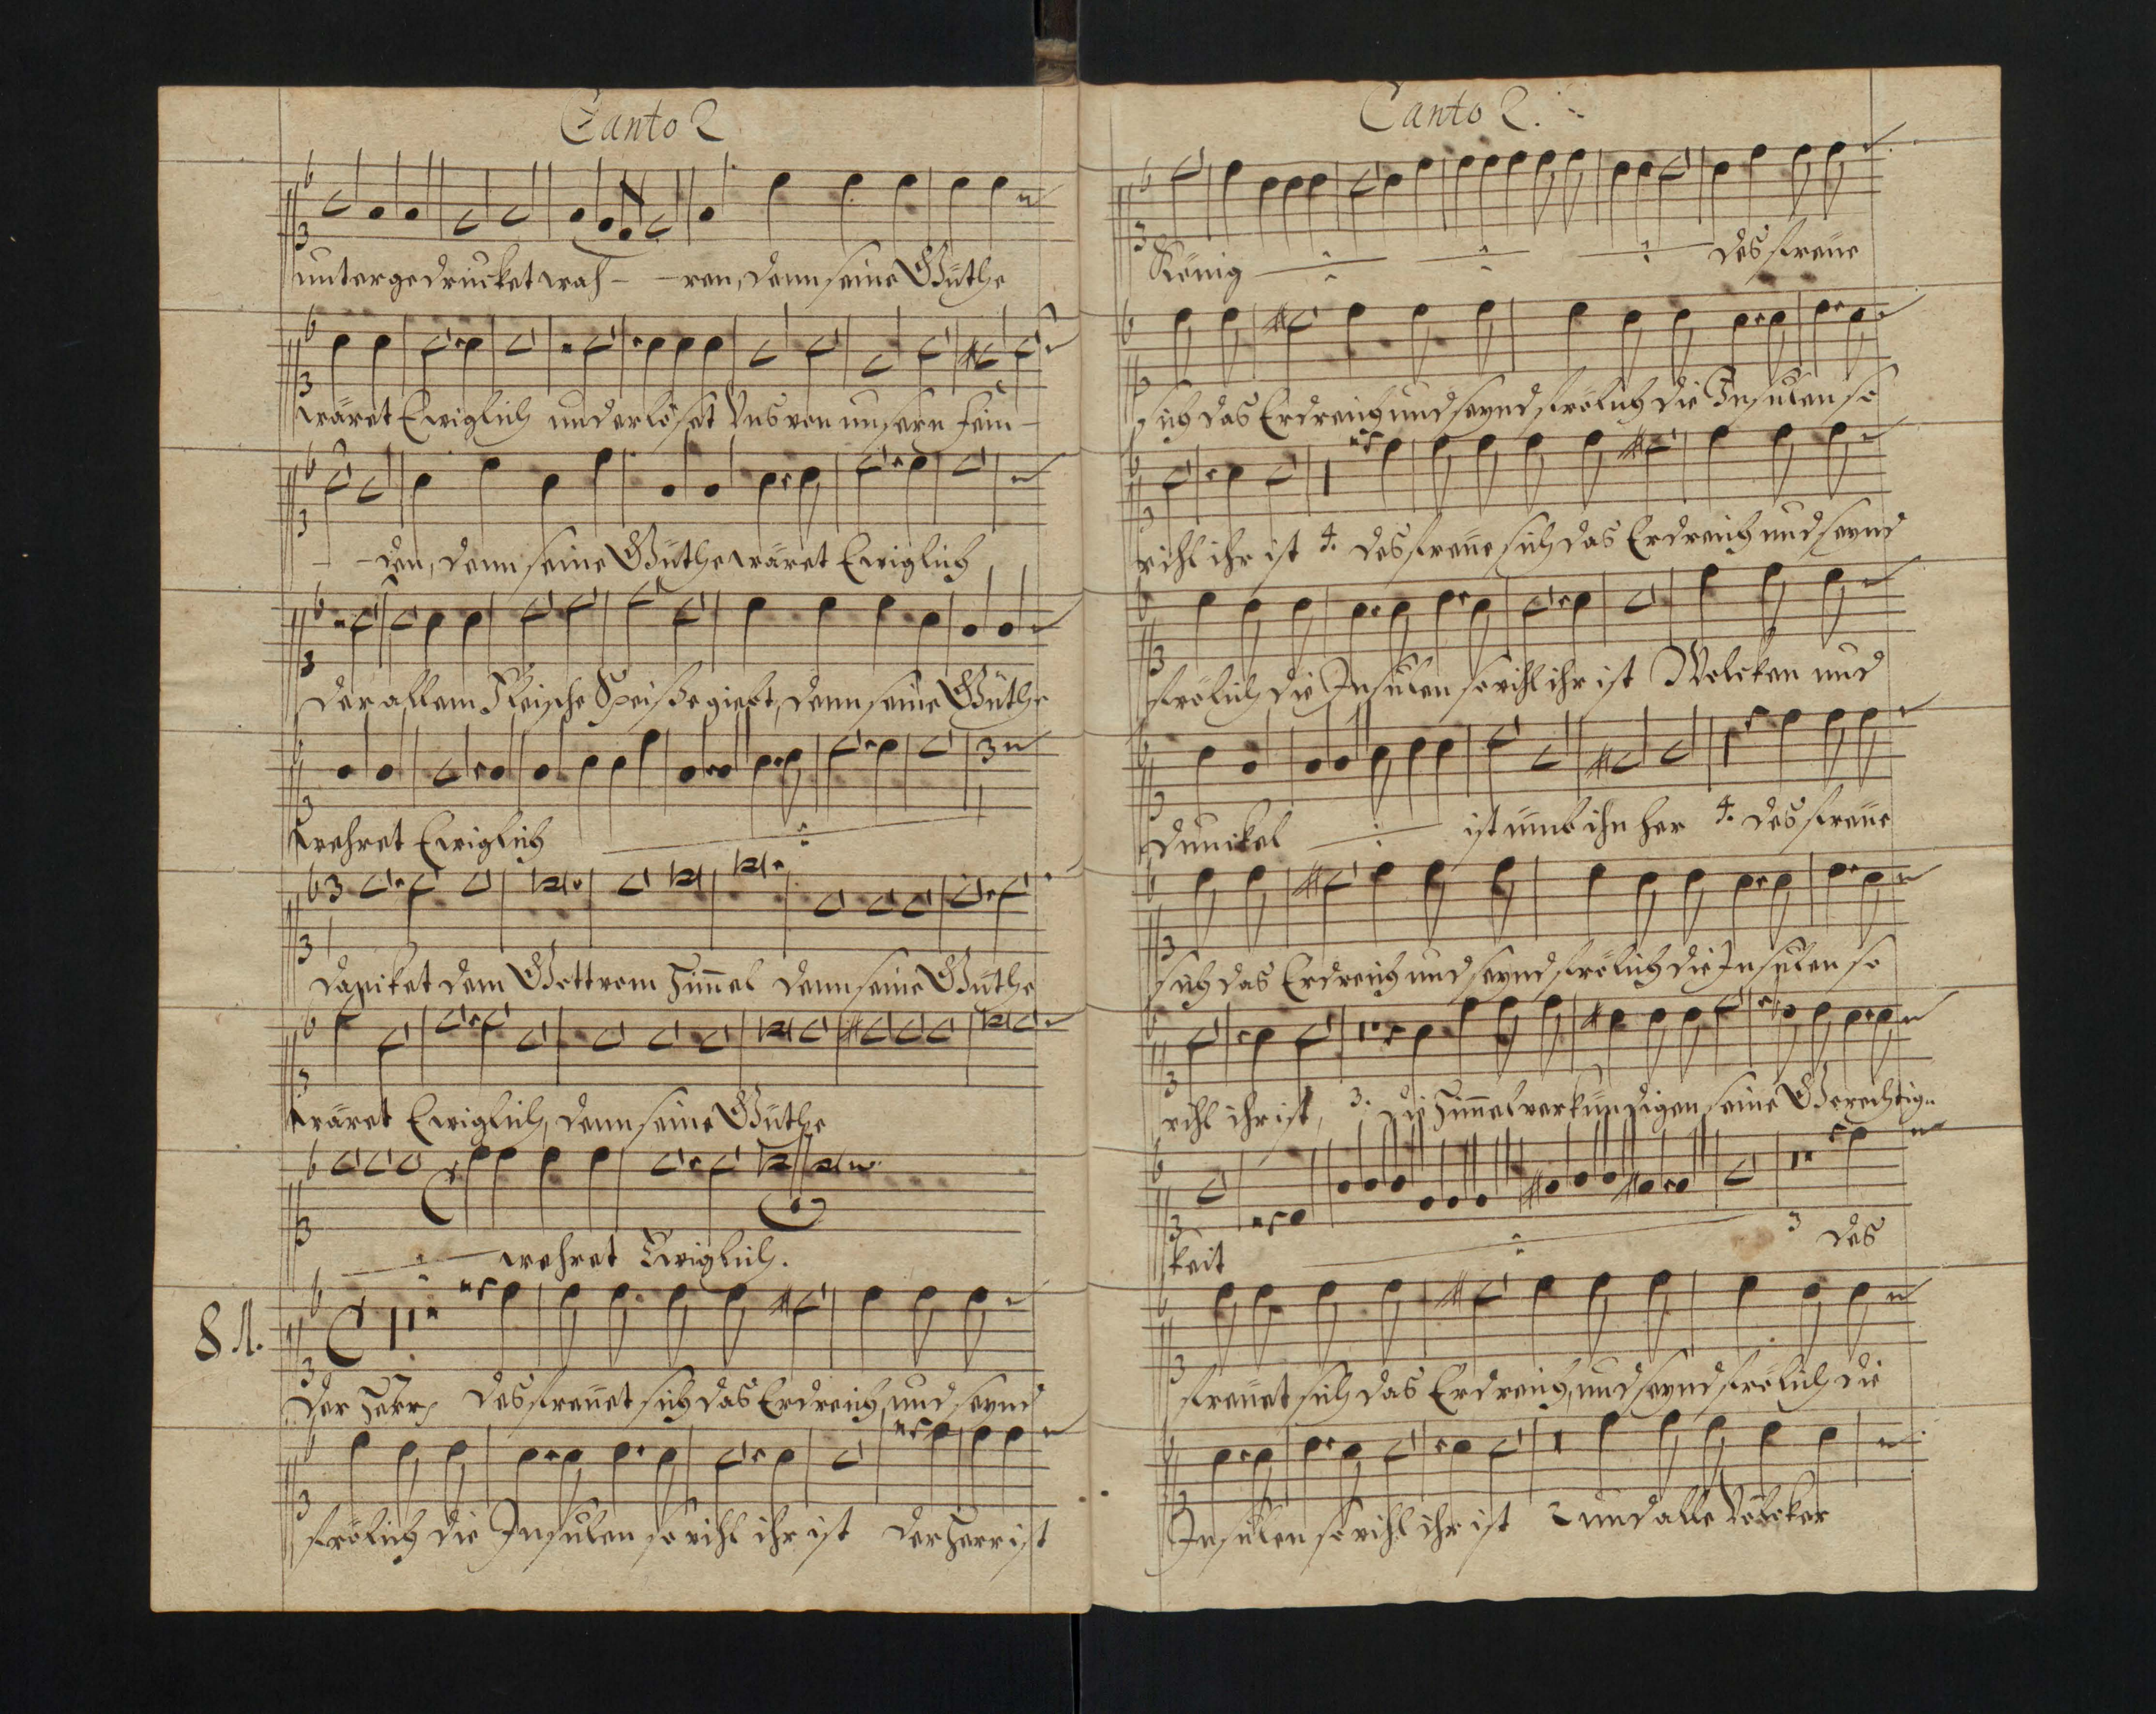 Canto 2
untergedrucket wah - - ren, denn seine Güthe
wäret Ewiglich und erlöset Uns von unsern Fein -
- - den, denn seine Güthe wäret Ewiglich
Der allem Fleische Speiße giebt, denn seine Güthe
wehret Ewiglich
3
Dancket dem Gott vom Himmel denn seine Güthe
wäret Ewiglich, denn seine Güthe
wehret Ewiglich.
81.
Der Herr des freuet sich das Erdreich, und seynd
frölich die Insulen so vihl ihr ist der Herr ist
Canto 2.
König des freue
sich das Erdreich und seynd frölich die Insulen so
vihl ihr ist 4. des freue sich das Erdreich und seynd
frölich die Insulen so vihl ihr ist Wolcken und
Dunckel ist umb ihn her 4. des freue
sich das Erdreich und seynd frölich die Insulen so
vihl ihr ist, 3. die Himmel verkündigen seine Gerechtig-
keit 3 des
freuet sich das Erdreich, und seynd frölich die
Insulen so vihl ihr ist 2 und alle Völcker